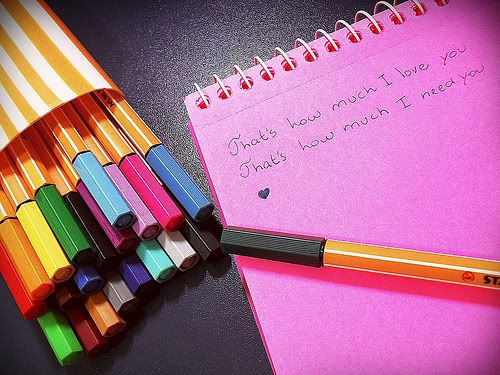 That's how much I love you
That's how much I need you
ST